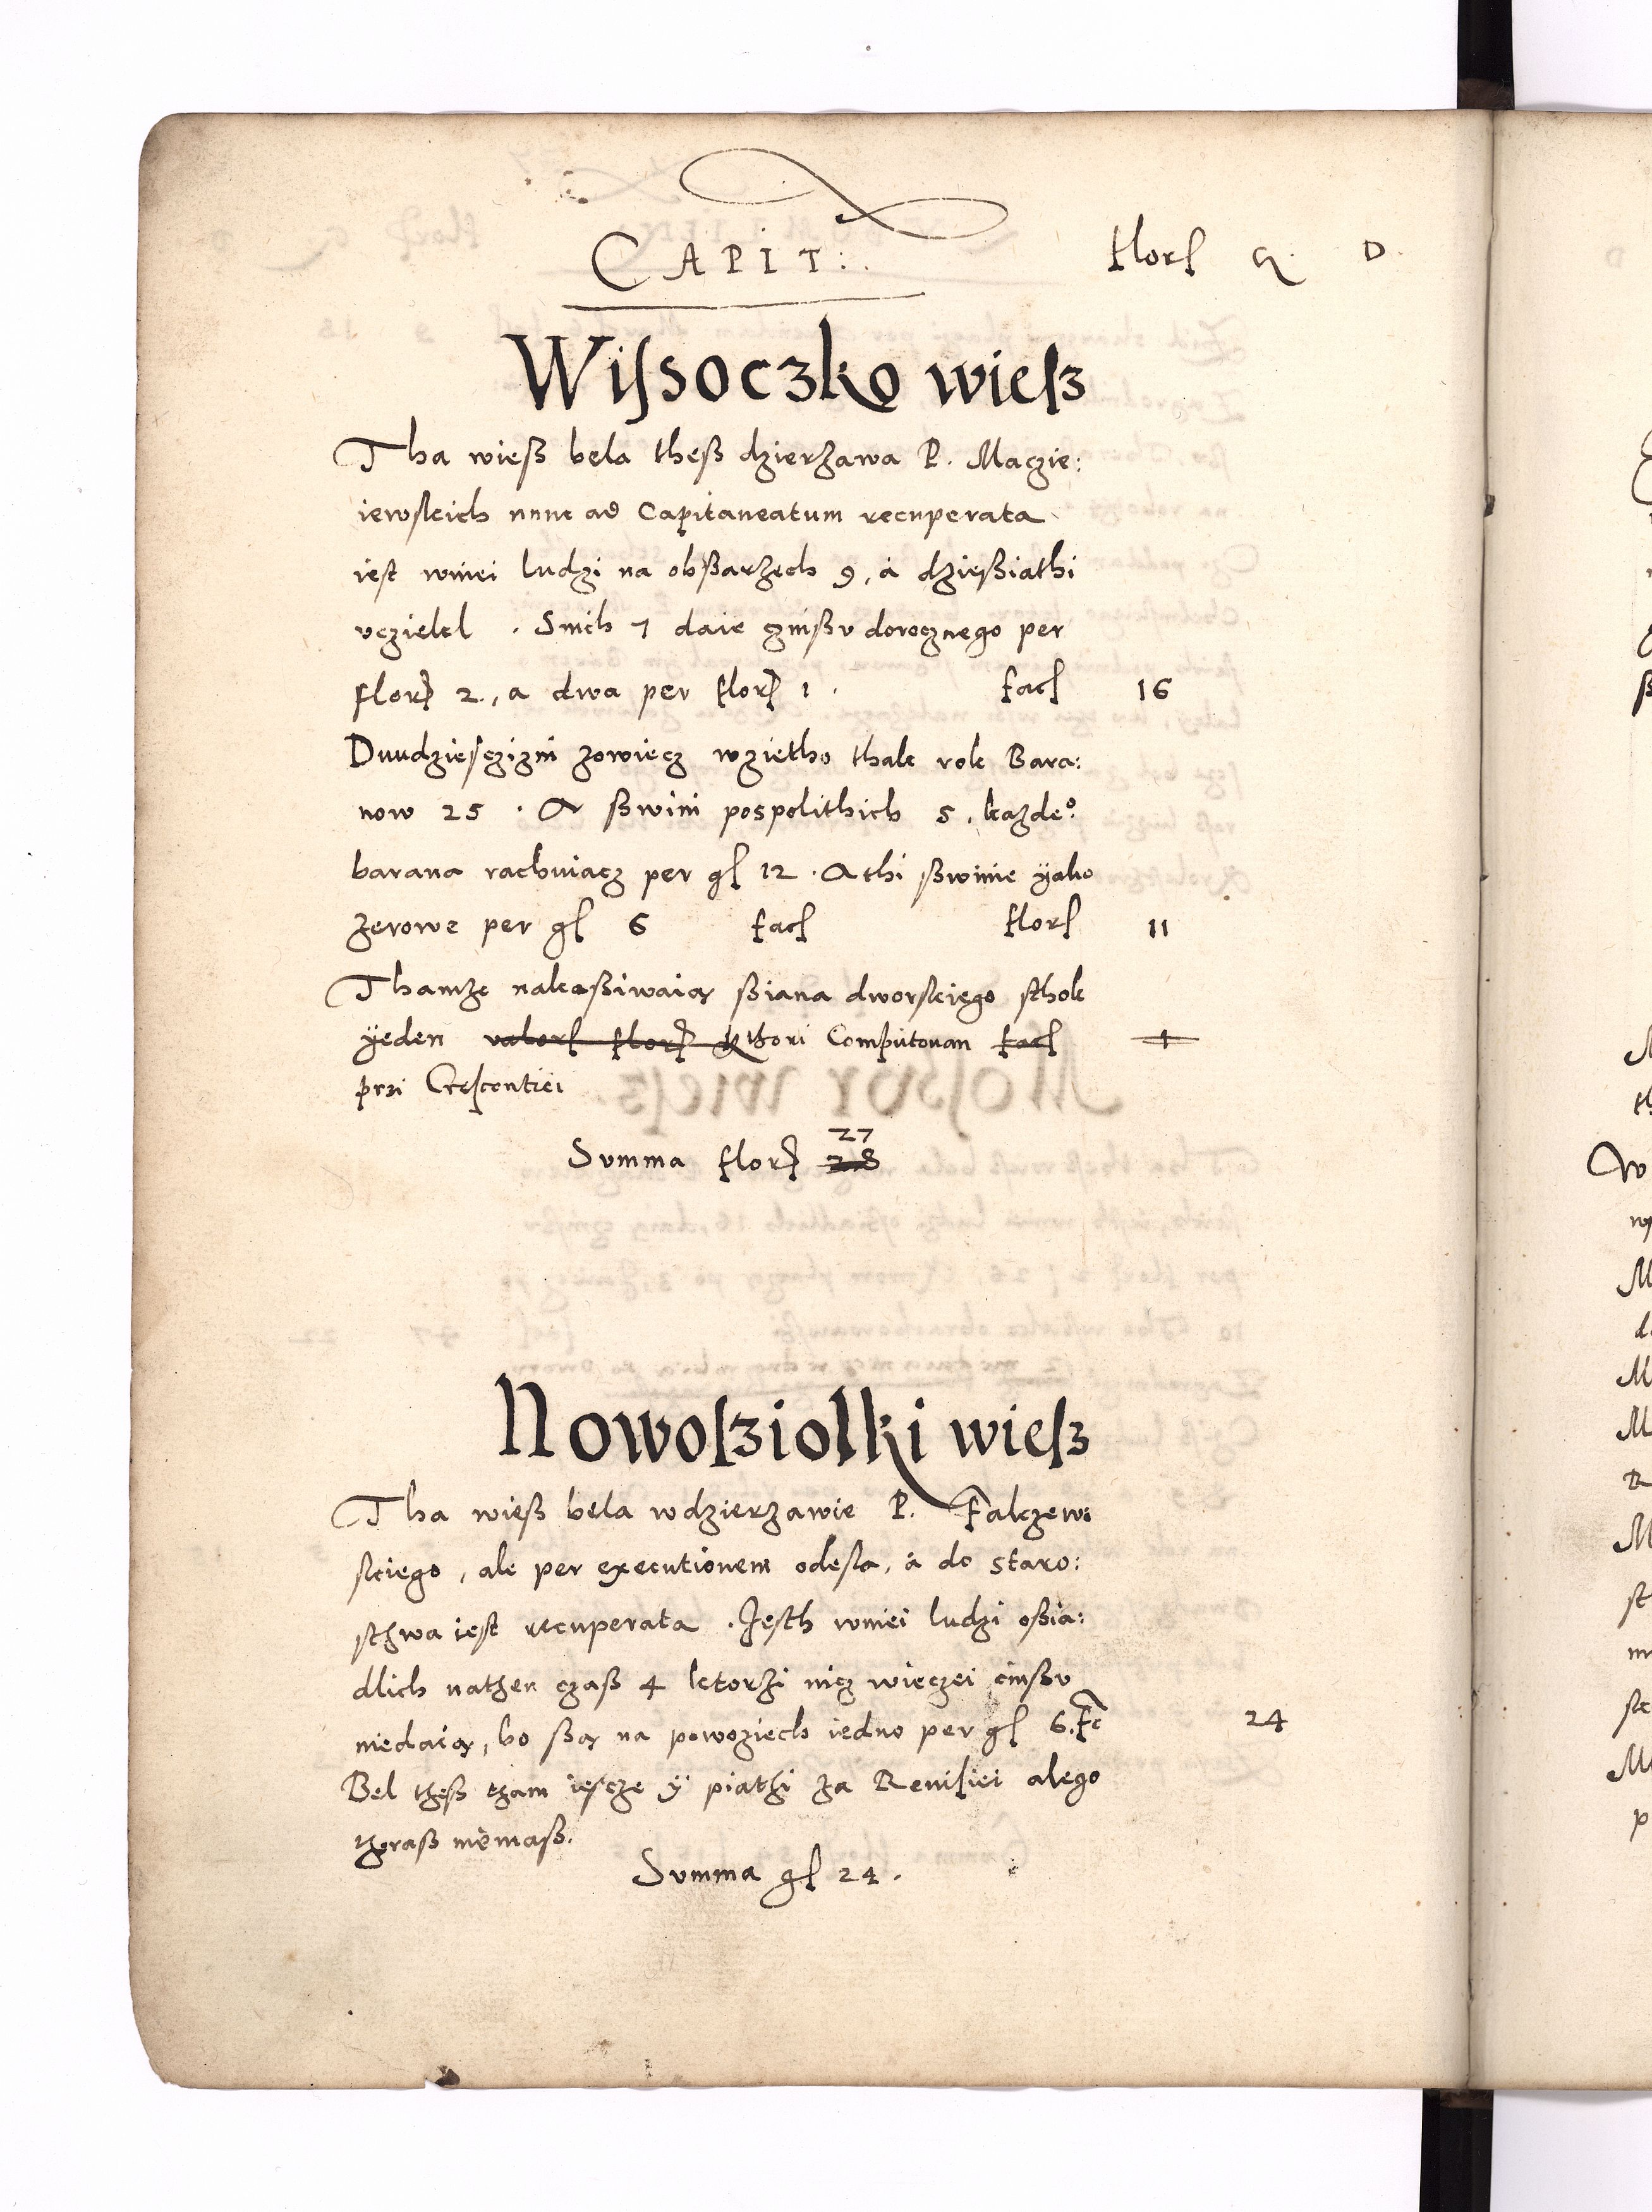 CAPIT:. florſ gr. D.
Wiſsoczko wieſz
Tha wieß bela theß dzierżawa P. Maczie:
iewskich nunc ad Capitaneatum recuperata
iest wniei ludzi na obßarzech 9, à dzießiathi
vcziekl . Snich 7 daie czinßu dorocznego per
florẜ 2., a dwa per florẜ 1 . facſ 16
Dwudzieſczizni zowiecz wzietho thak rok Bara:
now 25 . A ßwini pospolithich 5, każdeº
barana rachuiacz per gſ 12 . A thi ßwinie ÿako
żerowe per gſ 6 facſ florſ 11
Thamże nakaßiwaią ßiana dworskiego sthok
ÿeden valorſ florẜ kthori Computouan facſ 1
przi Creſcentiei
27
Summa florẜ 28
Nowoſziolki wieſz
Tha wieß bela wdzierżawie P. Falczew:
skiego, ale per executionem odesla, à do staro:
sthwa iest recuperata . Jesth wniei ludzi oßia:
dlich nathen czaß 4 ktorżi nicz wieczei cinßu
niedaią, bo ßą na powoziech iedno per gſ 6. Fc 24
Bel theß tham ieſcze ÿ piathi za Reuiſiei alego
theraß niemaß.
Summa gſ 24 .